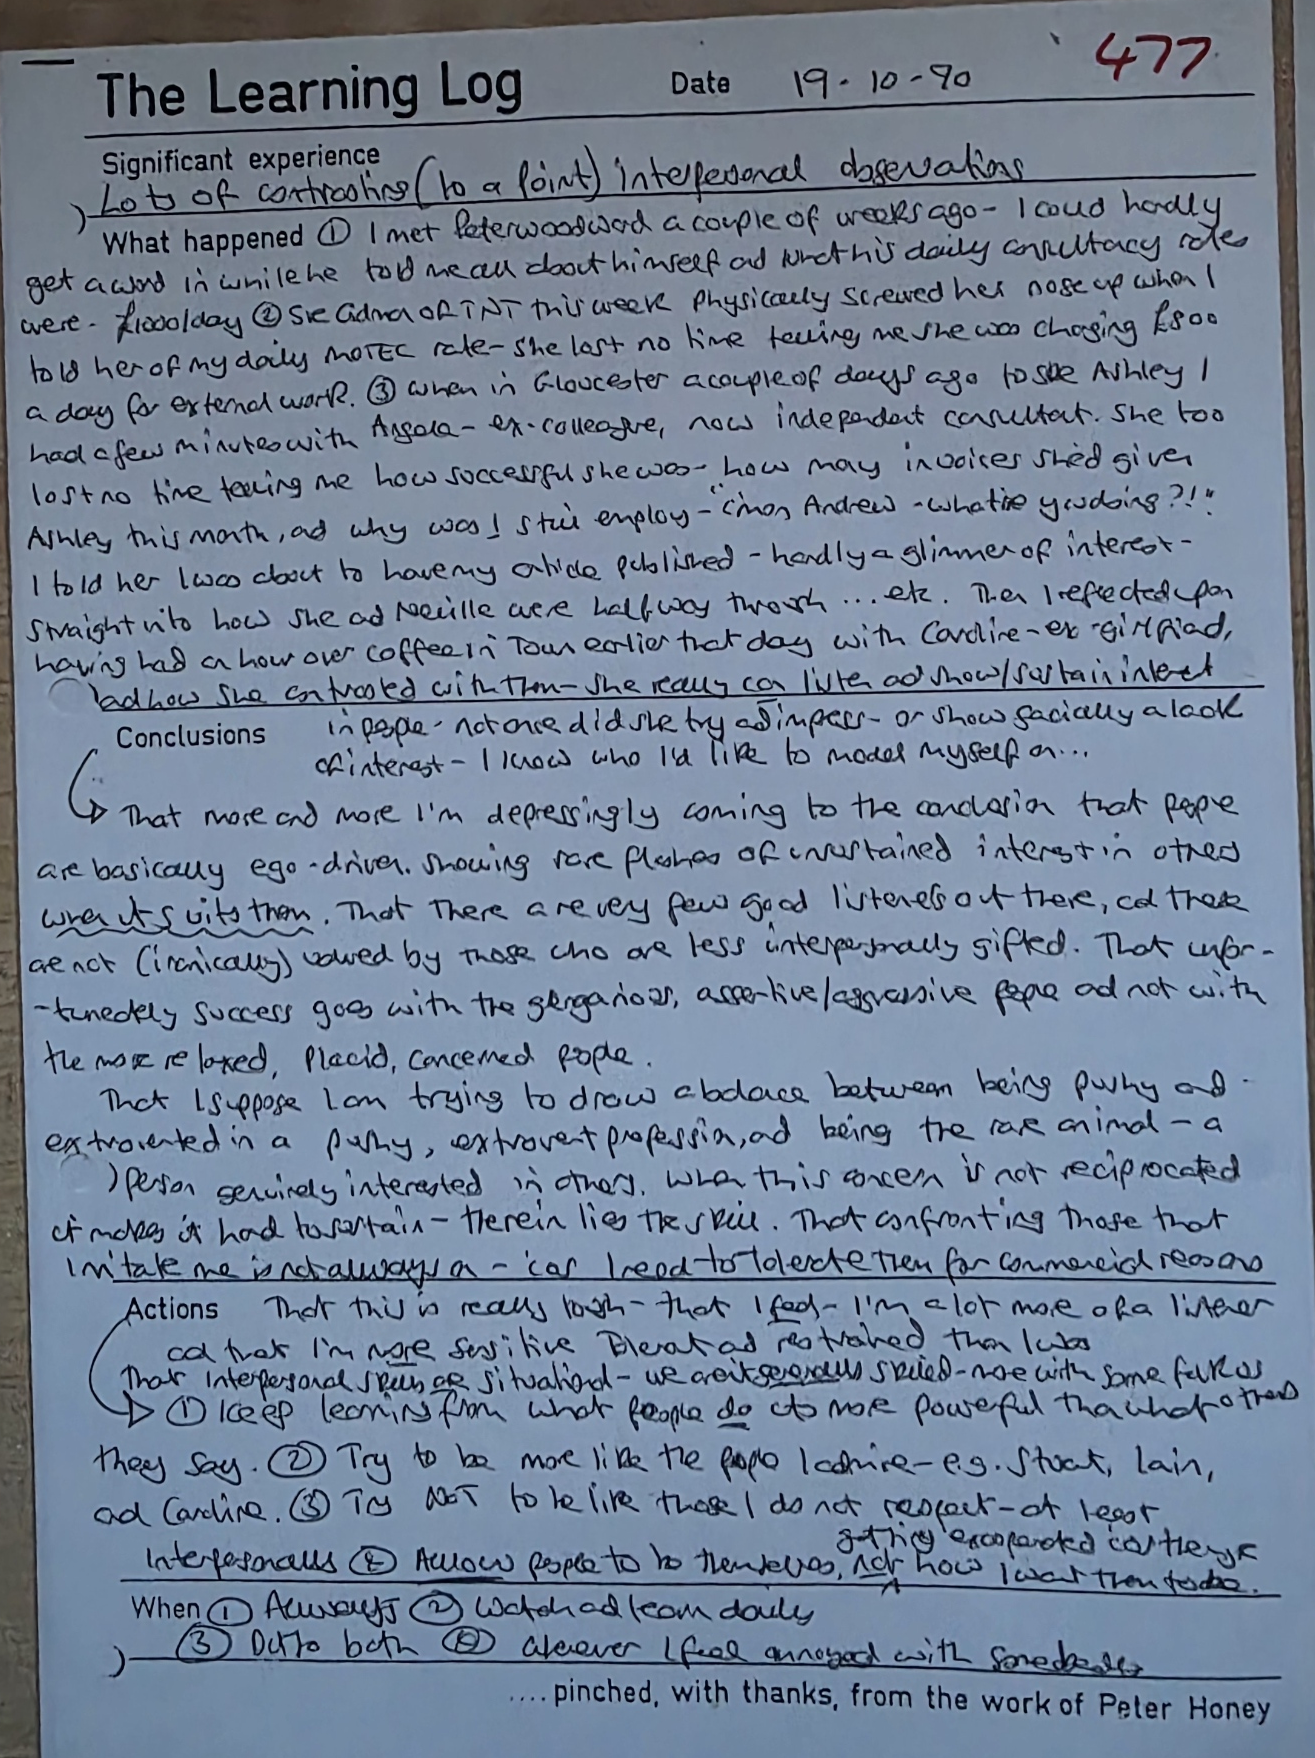 477
The Learning Log Date 19-10-90
Significant experience
Lots of contrasting (to a point) interpersonal observations
What happened ① I met Peter Woodward a couple of weeks ago - I could hardly
get a word in while he told me all about himself and what his daily consultancy rates
were - £1000/day ② Sue of TNT this week physically screwed her nose up when I
told her of my daily MOTEC rate - she lost no time telling me she was charging £800
a day for external work. ③ When in Gloucester a couple of days ago to see Ashley I
had a few minutes with Angela - ex-colleague, now independent consultant. She too
lost no time telling me how successful she was - how many invoices she'd given
Ashley this month, and why was I still employ - "c'mon Andrew - what're you doing?!"
I told her I was about to have my article published - hardly a glimmer of interest -
straight into how she and Neville were half way through ... etc. Then I reflected upon
having had an hour over coffee in Town earlier that day with Caroline - ex-girlfriend,
and how she contrasted with them - she really can listen and show/sustain interest
Conclusions in people - not once did she try and impress - or show facially a lack
of interest - I know who I'd like to model myself on...
That more and more I'm depressingly coming to the conclusion that people
are basically ego-driven. Showing rare flashes of unsustained interest in others
when it suits them. That there are very few good listeners out there, and these
are not (ironically) valued by those who are less interpersonally gifted. That unfor-
-tunedely success goes with the gregarious, assertive/aggressive people and not with
the more relaxed, placid, concerned people.
That I suppose I am trying to draw a balance between being pushy and
extroverted in a pushy, extrovert profession, and being the rare animal - a
person genuinely interested in others. When this concern is not reciprocated
it makes it hard to sustain - therein lies the skill. That confronting those that
irritate me is not always on - 'cos I need to tolerate them for commercial reasons
Actions That this is really tough - that I feel - I'm a lot more of a listener
and that I'm more sensitive tolerant and restrained than I was
That interpersonal skills are situational - we aren't generally skilled - more with some folk as
① Keep learning from what people do its more powerful than what others
they say. ② Try to be more like the people I admire - e.g. Stuart, Iain,
and Caroline. ③ Try NOT to be like those I do not respect - at least
getting exasperated 'cos they're
interpersonally ④ Allow people to be themselves, not how I want them to be.
When ① Always ② Watch and learn daily
③ Ditto both ④ Whenever I feel annoyed with somebody
....pinched, with thanks, from the work of Peter Honey